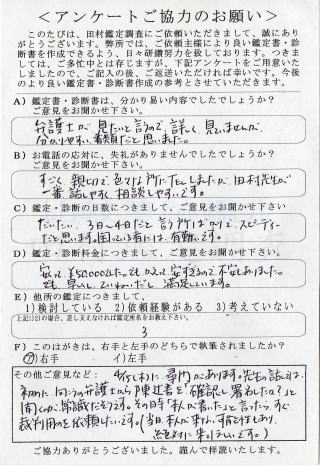 ＜アンケートご協力のお願い＞
このたびは、田村鑑定調査にご依頼いただきまして、誠にあり
がとうございます。弊所では、ご依頼主様により良い鑑定書・診
断書を作成できるよう、日々研鑽努力を致しております。つきま
しては、ご多忙中とは存じますが、下記アンケートをご用意いた
しましたので、ご記入の後、ご返送いただければ幸いです。今後
のより良い鑑定書・診断書作成の参考とさせていただきます。
A）鑑定書・診断書は、分かり易い内容でしたでしょうか？
ご意見をお聞かせ下さい。
弁護士が見たいと言うので詳しく見ていませんが、
分かりやすい書類だと思いました。
B）お電話の応対に、失礼がありませんでしたでしょうか？
ご意見をお聞かせ下さい。
すごく親切で、色々な所にTELしましたが、田村先生が
一番話しやすく相談しやすいです。
C）鑑定・診断の日数につきまして、ご意見をお聞かせ下さい
だいたい、3日〜4日だと言う所ばかりで、スピーディー
だと思います。困っている者には有難いです。
D）鑑定・診断料金につきまして、ご意見をお聞かせ下さい。
安くて¥50000でした。でもかえって安すぎるので不安もありました。
でも早いし、ていねいだし満足しています。
E）他所の鑑定につきまして、
1）検討している 2）依頼経験がある 3）考えていない
上記1)2)の場合、差し支えなければ鑑定所名をお教え下さい。
3
F）このはがきは、右手と左手のどちらで執筆されましたか？
ア)右手 イ)左手
その他ご意見など： 尋問があります。先生の話では、
初めに、向こうの弁護士から「陳述書を確認し署名したか？」と
聞くのが常識だそうです。その時「私が書いた」と言ったらすぐ
裁判用を依頼したいです。(当日、私が来るな、する可能性もあり、
絶対に来てもらいです。)
ご協力ありがとうございました。謹んで拝読いたします。